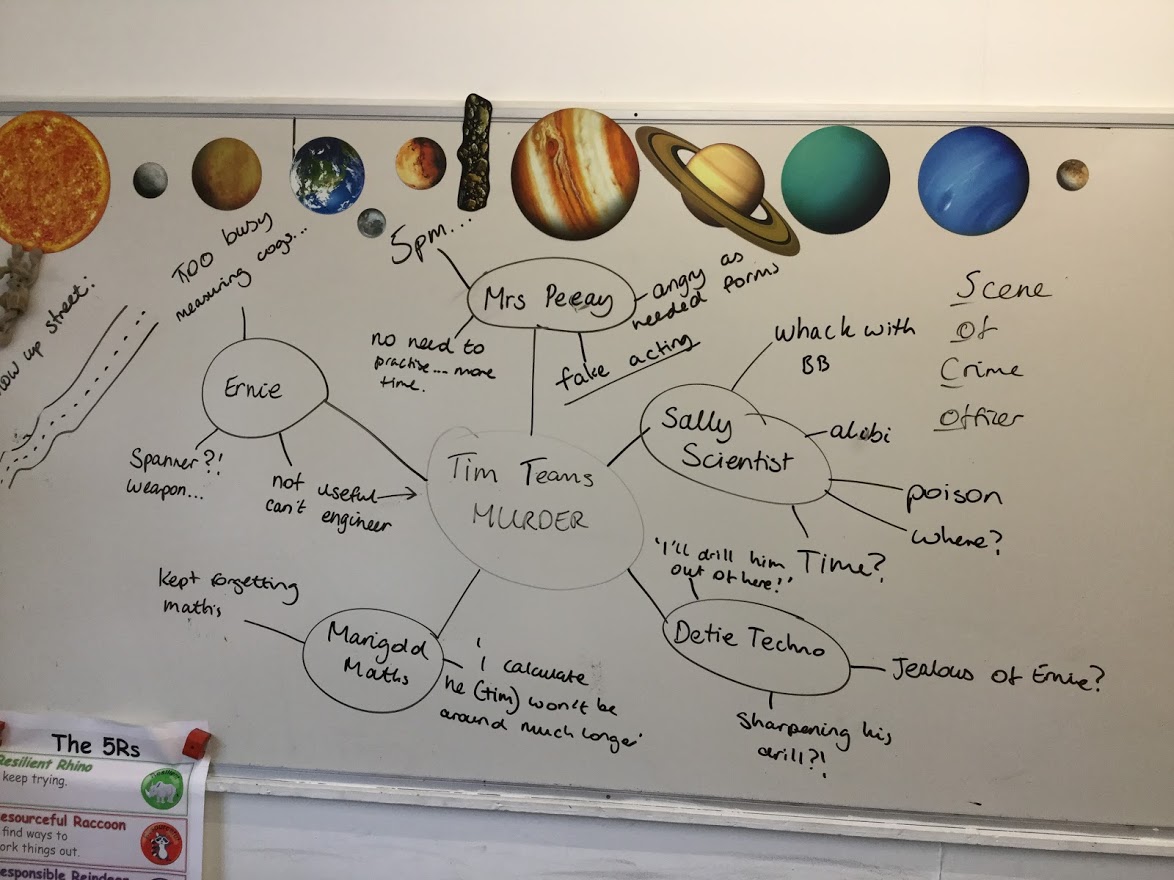 5pm...
Mrs Peeay
angry as
needed forms
no need to
practise.... more
time.
fake acting
TOO busy
measuring cogs...
Ernie
Spanner?!
weapon...
not useful
can't engineer
up street:
Tim Teams
MURDER
Sally
Scientist
whack with
BB
alibi
poison
where?
Time?
Scene
Of
Crime
Officer
'I'll drill him
out of here!'
Detie Techno
Jealous of Ernie?
Sharpening his
drill?!
Marigold
Maths
Kept forgetting
maths
'I calculate
he (tim) won't be
around much longer'
The 5Rs
Resilient Rhino
keep trying.
esourceful Raccoon
find ways to
ork things out.
esponsible Reindeer